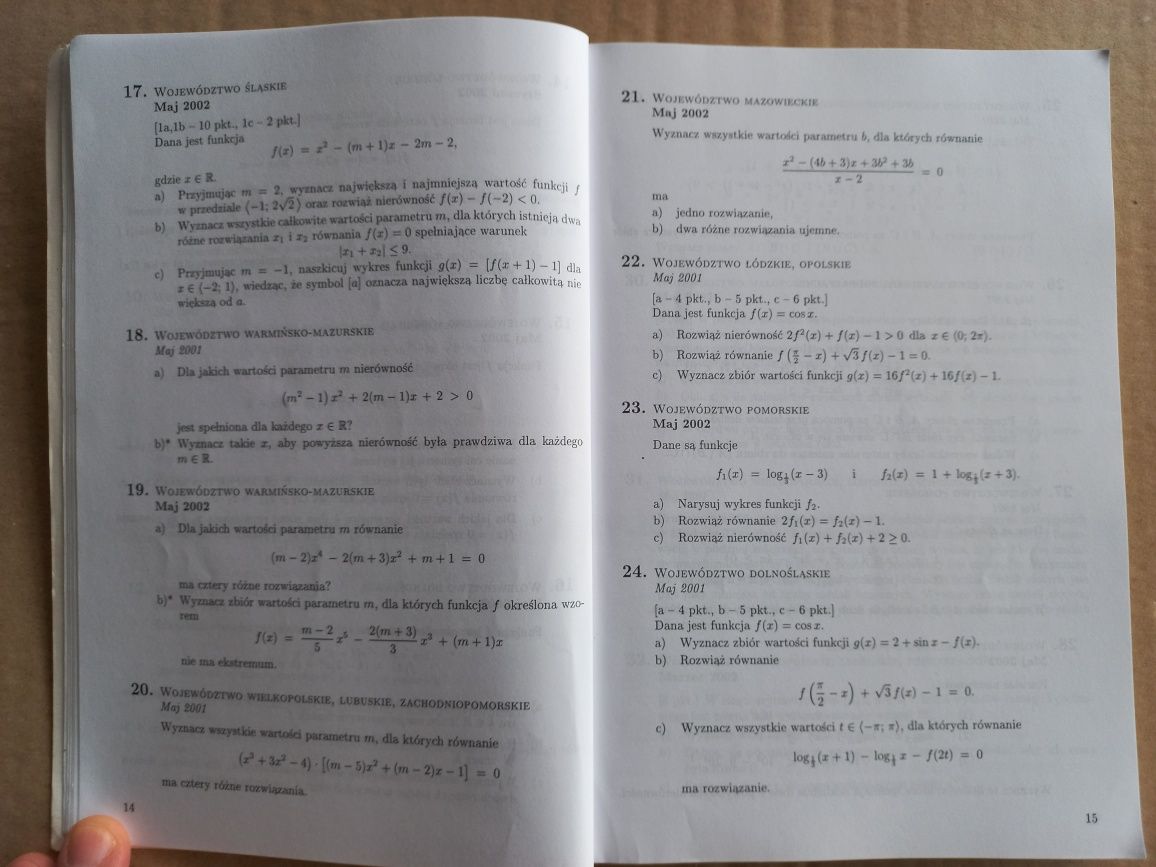 17. WOJEWÓDZTWO ŚLĄSKIE
Maj 2002
[1a,1b – 10 pkt., 1c – 2 pkt.]
Dana jest funkcja
f(x) = x² − (m + 1)x − 2m − 2,
gdzie x ∈ ℝ.
a) Przyjmując m = 2, wyznacz największą i najmniejszą wartość funkcji f
w przedziale ⟨−1; 2√2⟩ oraz rozwiąż nierówność f(x) − f(−2) < 0.
b) Wyznacz wszystkie całkowite wartości parametru m, dla których istnieją dwa
różne rozwiązania x₁ i x₂ równania f(x) = 0 spełniające warunek
|x₁ + x₂| ≤ 9.
c) Przyjmując m = −1, naszkicuj wykres funkcji g(x) = [f(x + 1) − 1] dla
x ∈ ⟨−2; 1), wiedząc, że symbol [a] oznacza największą liczbę całkowitą nie
większą od a.
18. WOJEWÓDZTWO WARMIŃSKO-MAZURSKIE
Maj 2001
a) Dla jakich wartości parametru m nierówność
(m² − 1) x² + 2(m − 1)x + 2 > 0
jest spełniona dla każdego x ∈ ℝ?
b)* Wyznacz takie x, aby powyższa nierówność była prawdziwa dla każdego
m ∈ ℝ.
19. WOJEWÓDZTWO WARMIŃSKO-MAZURSKIE
Maj 2002
a) Dla jakich wartości parametru m równanie
(m − 2)x⁴ − 2(m + 3)x² + m + 1 = 0
ma cztery różne rozwiązania?
b)* Wyznacz zbiór wartości parametru m, dla których funkcja f określona wzo-
rem
f(x) = (m − 2)/5 x⁵ − 2(m + 3)/3 x³ + (m + 1)x
nie ma ekstremum.
20. WOJEWÓDZTWO WIELKOPOLSKIE, LUBUSKIE, ZACHODNIOPOMORSKIE
Maj 2001
Wyznacz wszystkie wartości parametru m, dla których równanie
(x³ + 3x² − 4) · [(m − 5)x² + (m − 2)x − 1] = 0
ma cztery różne rozwiązania.
14
21. WOJEWÓDZTWO MAZOWIECKIE
Maj 2002
Wyznacz wszystkie wartości parametru b, dla których równanie
x² − (4b + 3)x + 3b² + 3b
x − 2
= 0
ma
a) jedno rozwiązanie,
b) dwa różne rozwiązania ujemne.
22. WOJEWÓDZTWO ŁÓDZKIE, OPOLSKIE
Maj 2001
[a – 4 pkt., b – 5 pkt., c – 6 pkt.]
Dana jest funkcja f(x) = cos x.
a) Rozwiąż nierówność 2f²(x) + f(x) − 1 > 0 dla x ∈ ⟨0; 2π⟩.
b) Rozwiąż równanie f(π/2 − x) + √3 f(x) − 1 = 0.
c) Wyznacz zbiór wartości funkcji g(x) = 16f²(x) + 16f(x) − 1.
23. WOJEWÓDZTWO POMORSKIE
Maj 2002
Dane są funkcje
f₁(x) = log (x − 3) i f₂(x) = 1 + log (x + 3).
a) Narysuj wykres funkcji f₂.
b) Rozwiąż równanie 2f₁(x) = f₂(x) − 1.
c) Rozwiąż nierówność f₁(x) + f₂(x) + 2 ≥ 0.
24. WOJEWÓDZTWO DOLNOŚLĄSKIE
Maj 2001
[a – 4 pkt., b – 5 pkt., c – 6 pkt.]
Dana jest funkcja f(x) = cos x.
a) Wyznacz zbiór wartości funkcji g(x) = 2 + sin x − f(x).
b) Rozwiąż równanie
f(π/2 − x) + √3 f(x) − 1 = 0.
c) Wyznacz wszystkie wartości t ∈ ⟨−π; π⟩, dla których równanie
log (x + 1) − log x − f(2t) = 0
ma rozwiązanie.
15